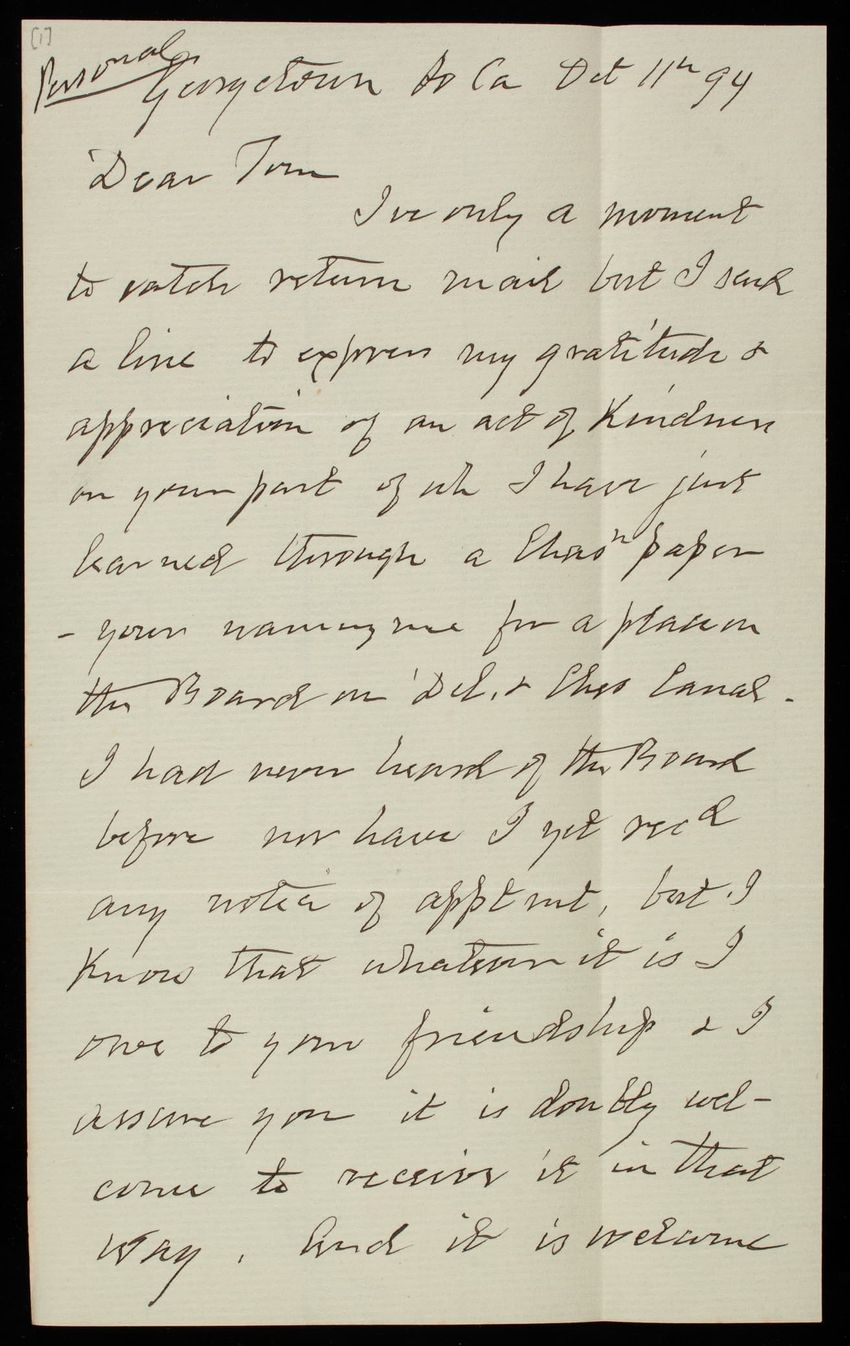 [1]
Personal
Georgetown So Ca Oct 11th 94
Dear Tom
I've only a moment
to catch return mail but I send
a line to express my gratitude &
appreciation of an act of Kindness
on your part of wh I have just
learned through a Chasn paper
- your naming me for a place on
the Board on Del. & Ches Canal.
I had never heard of the Board
before nor have I yet recd
any notice of apptmt, but I
Know that whatever it is I
owe to your friendship & I
assure you it is doubly wel-
come to receive it in that
way. And it is welcome